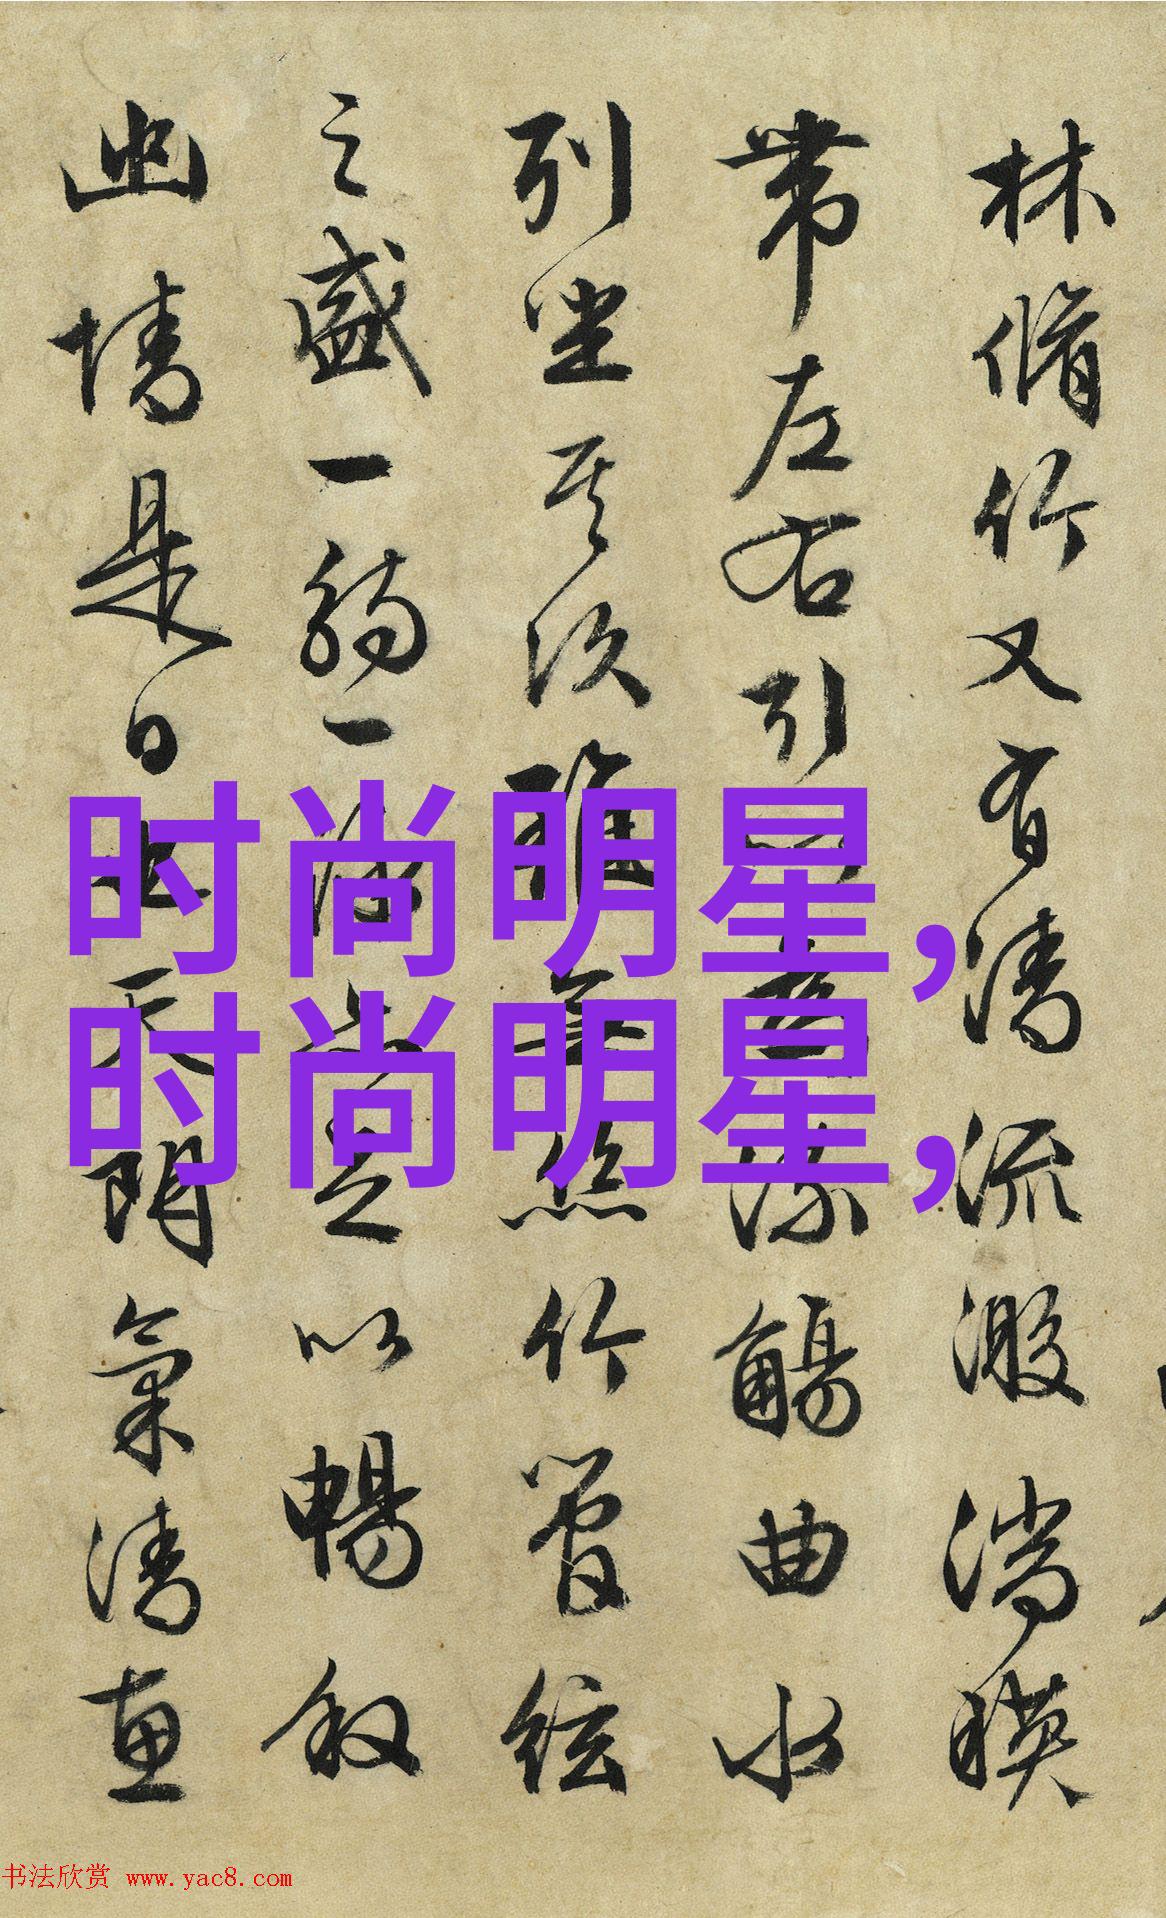 林脩竹又有清流激湍暎
帶左右引以為流觴曲水
列坐其次雖無絲竹管絃
之盛一觴一詠亦足以暢敘
幽情是日也天朗氣清惠
时尚明星，
时尚明星，
书法欣赏 www.yac8.com